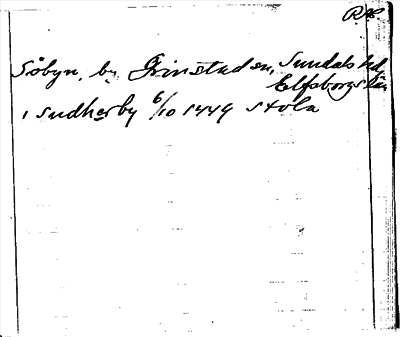 Söbyn, by, Grinstad sn, Sundals hd,
Elfsborgs län
i sudherby 6/10 1449 Stola